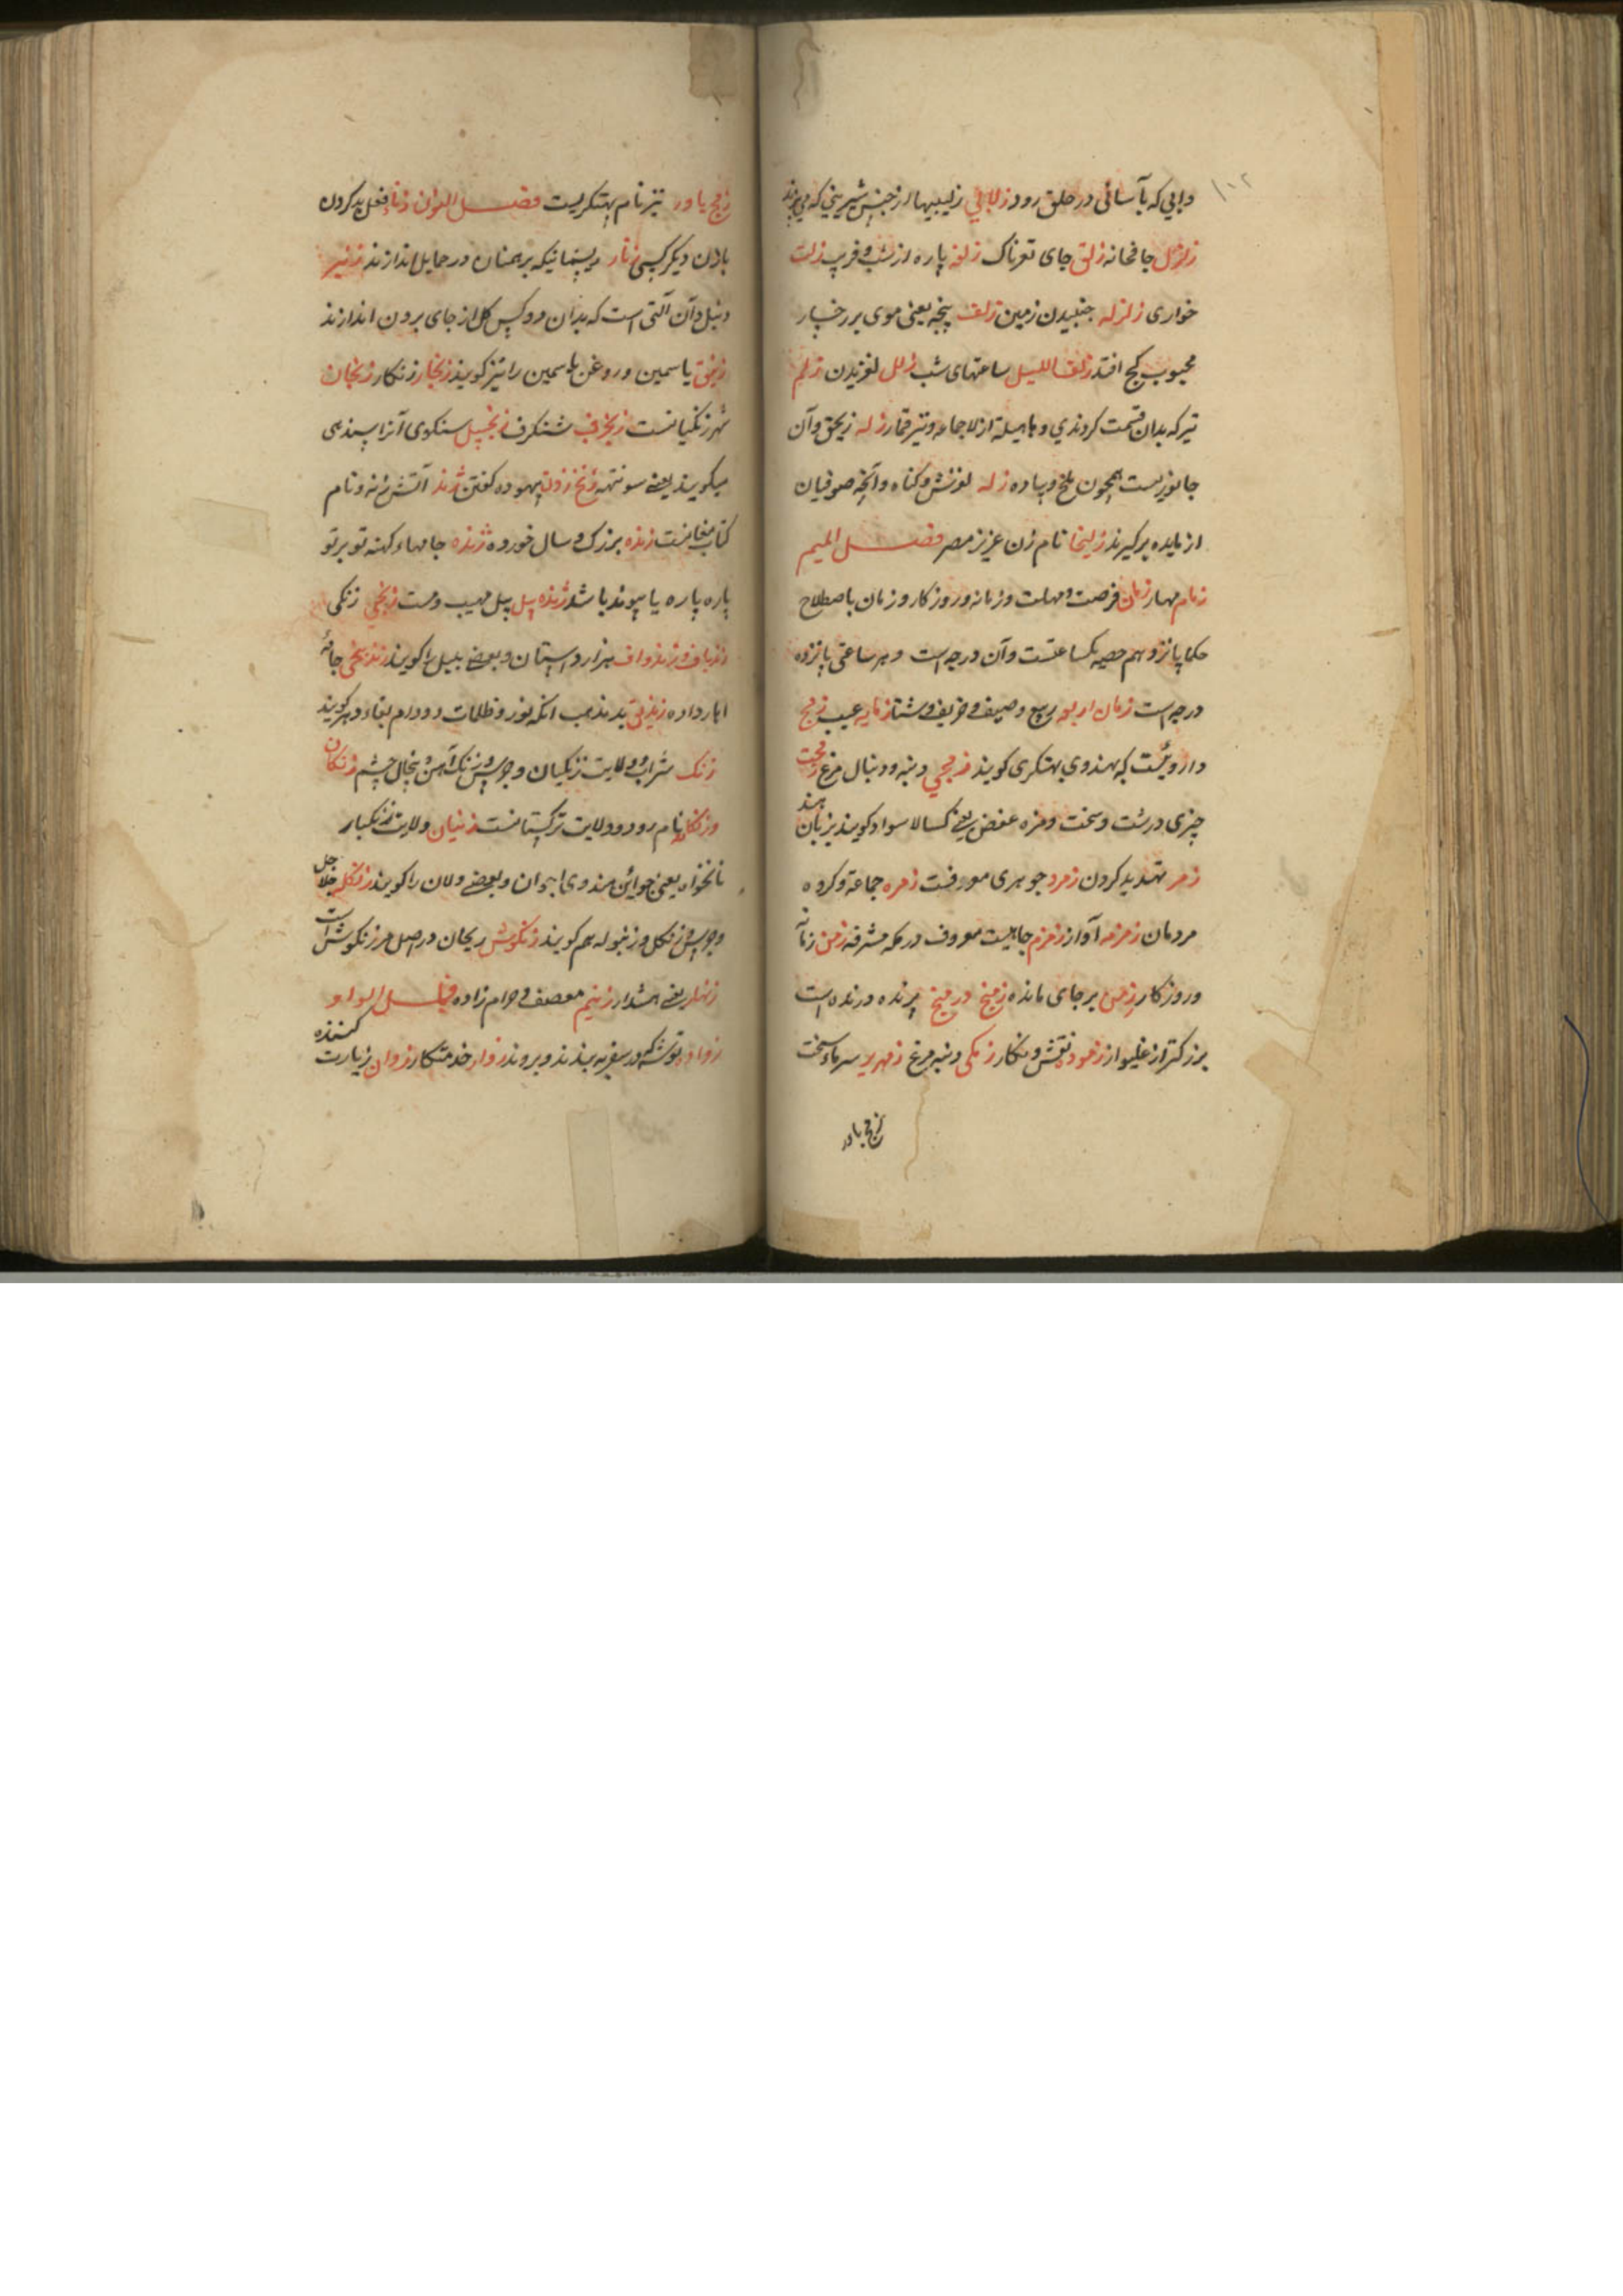 ۱۰۲
وابی که بآسانی در حلق رود زلابی زلیبیها از جنس شیرینی که می پزند
زلزل جافخانه زلق جای لغزناک زلفه پاره از شب و قریب زلت
خواری زلزله جنبیدن زمین زلف پیچه یعنی موی بر رخسار
محبوب کج افتد زلف اللیل ساعتهای شب زلل لغزیدن زلم
تیر که بدان قسمت کردندی و قمار زله و آن
جانوریست همچون ملخ و سیاه زله لغزش و گناه و آنچه صوفیان
از مایده برگیرند زلیخا نام زن عزیز مصر فصل المیم
زمام مهار زمان فرصت و مهلت و زمانه و روزکار و زمان باصطلاح
حکما پانزدهم حصه یکساعتست و آن درجه است و هر ساعتی پانزده
درجه است زمان اربعه ربیع و صیف و خریف و شتا عیب زمج
داروئیست که بهندوی بهتکری کویند زمجی دنبه و دنبال مرغ زمخت
چیزی درشت و سخت و مزه عفص یعنی کسالا سواد کویند بزبان هند
زمر تهدید کردن زمرد جوهری معروفست زمره جماعة و کروه
مردمان زمزمه آواز زمزم چاهیست معروف در مکه مشرفه زمن زمانه
و روزکار زمن بر جای مانده زمنج در منج پرنده درنده است
بزرکتر از غلیواز زموده نقش و نکار زمکی دنبه مرغ زمهریر سرماء سخت
زمج یاور
زمج یاور نیز نام بهتکریست فصل النون زنا فعل بد کردن
با زن دیکر کسی زنار ریسمانیکه برهمنان در حمایل اندازند زنبر
زنبل و آن آلتی است که بدان دو کس کل از جای برون اندازند
زنبق یاسمین و روغن یاسمین را نیز کویند زنجار زنکار زنجان
شهر زنکیانست زنجرف شنکرف زنجبیل سنکوی آنرا بهندی
میکویند یعنی سونتهه زنخ زدن بیهوده کفتن زند آتش زنه و نام
کتاب مغانست زنده بزرک و سال خورده ژنده جامهاء کهنه تو بر تو
پاره پاره یا پیوند باشد ژنده پیل پیل مهیب و مست زنجی زنکی
زندباف و زندواف هزار دوستان و بعضی بلبل را کویند زندپیچی جامهٔ
اهار داده زندیق بد مذهب آنکه نور و ظلمات و دوام بقاء دهر کویند
زنک شراب و ولایت زنکیان و جرس و زنک آهن و پنجال چشم زنکان
و زنکله نام رود و ولایت ترکستانست زنیان ولایت زنکبار
نانخواه یعنی جوائن هندوی اجوان و بعضی ولان را کویند زنکله جلاجل
و جرس و زنکل و زنبوله هم کویند زنکوش ریحان در اصل مرزنکوش است
زنهار یعنی هشدار زنیم معصف و حرام زاده فصل الواو
زواده توشه که در سفر به بندند و برند زوار خدمتکار زوار زیارت کننده